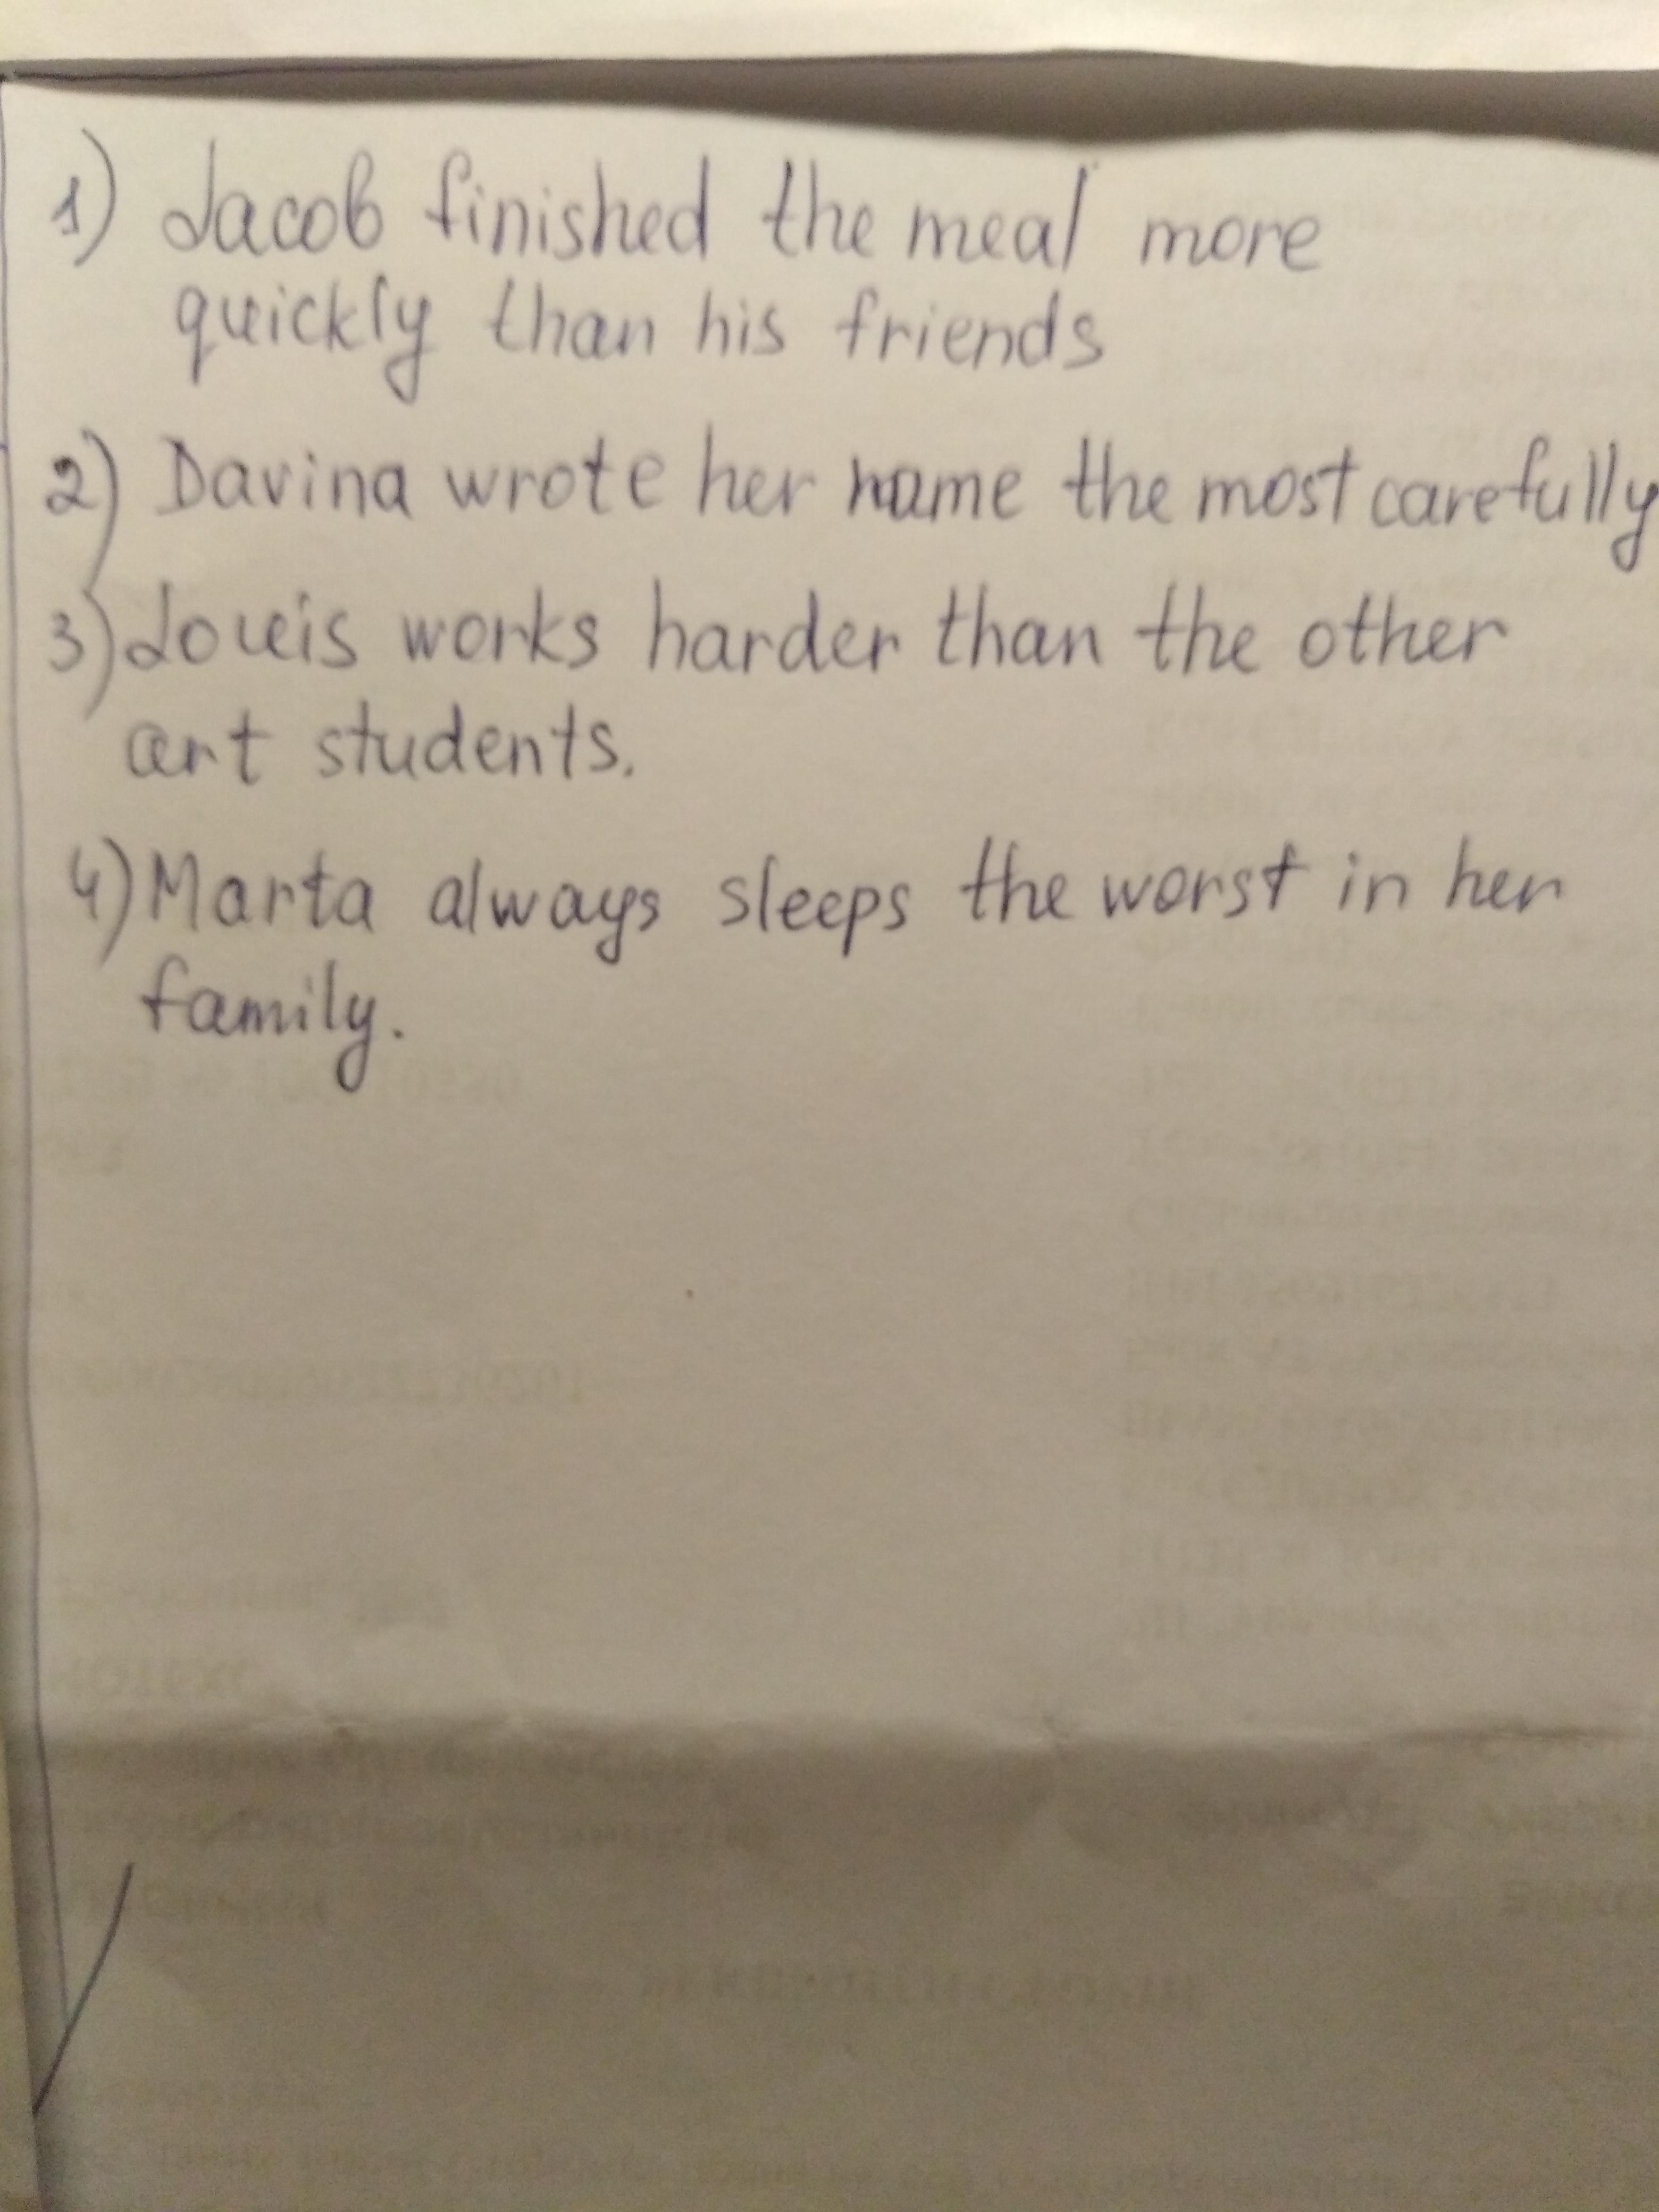 1) Jacob finished the meal more
quickly than his friends
2) Davina wrote her name the most carefully
3) Louis works harder than the other
art students.
4) Marta always sleeps the worst in her
family.